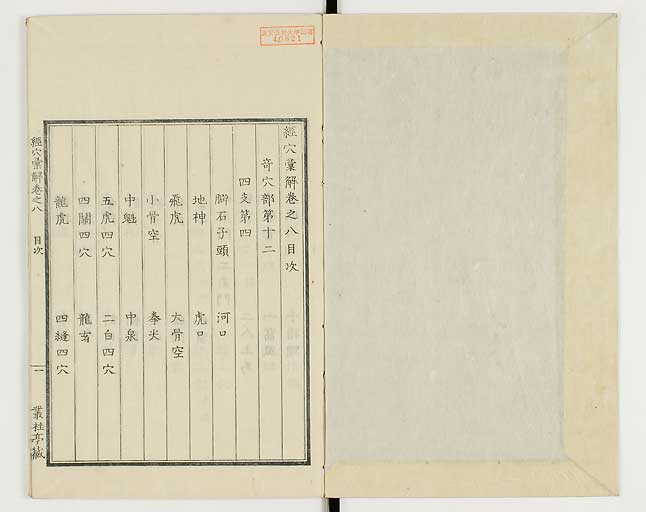 經穴彙解卷之八目次
奇穴部第十二
四支第四
臂石子頭 河口
地神 虎口
飛虎 大骨空
小骨空 拳尖
中魁 中泉
五虎四穴 二白四穴
四關四穴 龍玄
龍虎 四縫四穴
經穴彙解卷之八 目次 一 叢桂亭藏
40821